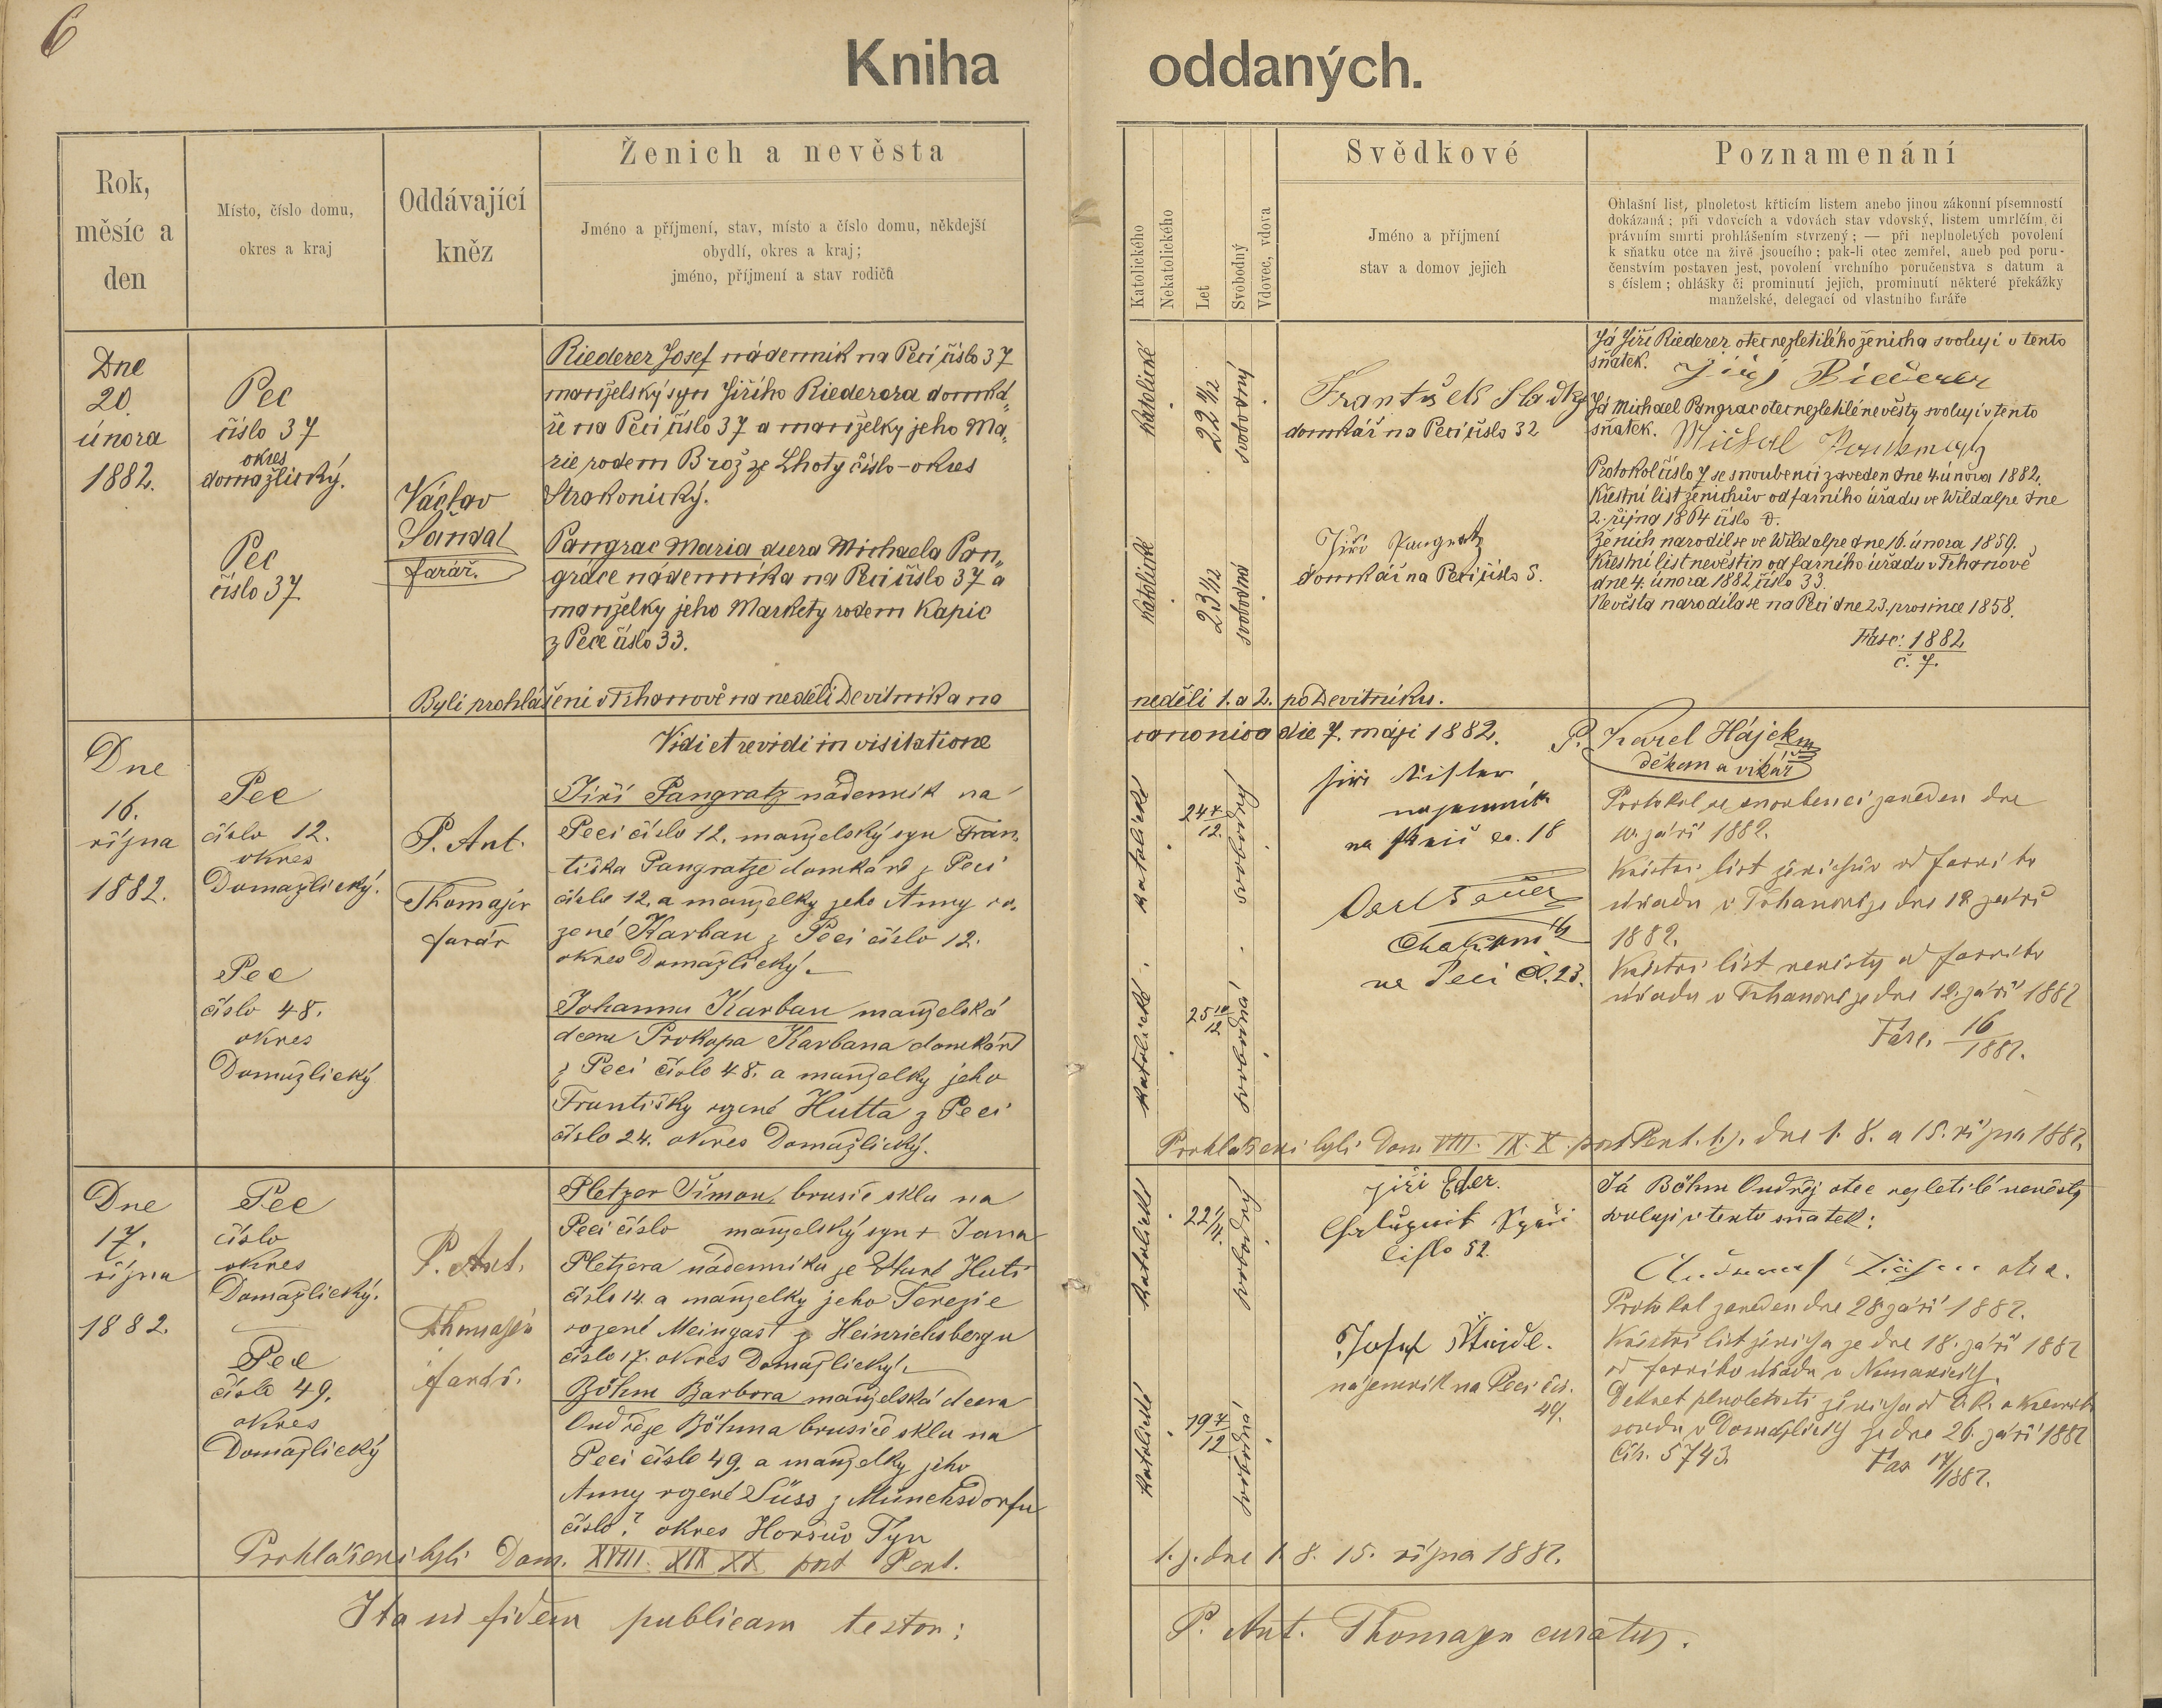 6
Kniha oddaných.
Rok,
měsíc a
den
Místo, číslo domu,
okres a kraj
Oddávající
kněz
Ženich a nevěsta
Jméno a příjmení, stav, místo a číslo domu, někdejší
obydlí, okres a kraj;
jméno, příjmení a stav rodičů
Katolického
Nekatolického
Let
Svobodný
Vdovec, vdova
Svědkové
Jméno a příjmení
stav a domov jejich
Poznamenání
Ohlašní list, plnoletost křticím listem anebo jinou zákonní písemností
dokázaná; při vdovcích a vdovách stav vdovský, listem umrlčím, či
právním smrti prohlášením stvrzený; — při neplnoletých povolení
k sňatku otce na živě jsoucího; pak-li otec zemřel, aneb pod poru-
čenstvím postaven jest, povolení vrchního poručenstva s datum a
s číslem; ohlášky či prominutí jejich, prominutí některé překážky
manželské, delegací od vlastního faráře
Dne
20.
února
1882.
Pec
číslo 37
okres
domažlický.
Pec
číslo 37
Václav
Šandal
farář.
Riederer Josef nádenník na Peci číslo 37
manželský syn Jiřího Riederera domká„
ře na Peci číslo 37 a manželky jeho Ma„
rie rodem Brož ze Lhoty číslo – okres
Strakonický.
Pangrac Maria dcera Michaela Pan„
gráce nádenníka na Peci číslo 37 a
manželky jeho Markety rodem Kapic
z Pece číslo 33.
katolické
22 11/12
svobodný
katolické
23 1/12
svobodná
František Sladky
domkář na Peci číslo 32
Jiři Pangratz
domkář na Peci číslo 5.
Já Jiří Riederer otec nezletilého ženicha svoluji v tento
sňatek. Jiří Riederer
Já Michael Pangrac otec nezletilé nevěsty svoluji v tento
sňatek.
Protokol číslo 7 se snoubenci zaveden dne 4. února 1882.
Křestní list ženichův od farního úřadu ve Wildalpe dne
2. října 1864 číslo
Ženich narodil se ve Wildalpe dne 16. února 1859.
Křestní list nevěstin od farního úřadu v Trhanově
dne 4. února 1882 číslo 33.
Nevěsta narodila se na Peci dne 23. prosince 1858.
Fasc: 1882
č. 7.
Byli prohlášeni v Trhanově na neděli Devítníka na neděli 1. a 2. po Devítníku.
Vidi et revidi in visitatione canonica die 7. máji 1882. P. Karel Hájek
děkan a vikář
Dne
16.
října
1882.
Pec
číslo 12.
okres
Domažlický.
Pec
číslo 48.
okres
Domažlický
P. Ant.
Thomayer
farář
Jiří Pangratz nádenník na
Peci číslo 12. manželský syn Fran„
tiška Pangratze domkáře z Peci
číslo 12. a manželky jeho Anny ro„
zené Karban z Peci číslo 12.
okres Domažlický.
Johanna Karban manželská
dcera Prokopa Karbana domkáře
z Peci číslo 48. a manželky jeho
Františky rozené Hutta z Peci
číslo 24. okres Domažlický.
katolické
24 7/12
svobodný
katolické
25 10/12
svobodná
Jiři
najemník
na Peci čo. 18
na Peci Č. 23.
Protokol se snoubenci zaveden dne
10. září 1882.
Křestní list ženichův od farního
úřadu v Trhanově ze dne 12 září
1882.
Křestní list nevěsty od farního
úřadu v Trhanově ze dne 12. září 1882
Fasc. 16/1882.
Prohlášeni byli Dom XVIII. XIX. XX. post Pent. t. j. dne 1. 8. a 15. října 1882.
Dne
17.
října
1882.
Pec
číslo
okres
Domažlický.
Pec
číslo 49.
okres
Domažlický
P. Ant.
Thomayer
farář.
Pletzer Šimon, brusič skla na
Peci číslo manželský syn + Jana
Pletzera nádenníka ze Staré Huti
číslo 14. a manželky jeho Terezie
rozené Meingast z Heinrichsbergu
číslo 17. okres Domažlický.
Böhm Barbora manželská dcera
Ondřeje Böhma brusiče skla na
Peci číslo 49. a manželky jeho
Anny rozené Süss z Münchsdorfu
číslo? okres Horšův Týn
katolické
svobodný
katolické
19 7/12
svobodná
Jiři Eder.
Chalupnik
číslo 52.
Josef
nájemník na Peci čís.
49.
Já Böhm Ondřej otec nezletilé nevěsty
svoluji v tento sňatek:
otec.
Protokol zaveden dne 28. září 1882.
Křestní list ženicha ze dne 18. září 1882
od farního úřadu v
Dekret plnoletosti ženicha od c.k. okresního
soudu v Domažlicích ze dne 26. září 1882
Čís. 5743.
Fas 17/1882.
Prohlášeni byli Dom. XVIII. XIX XX post Pent. t. j. dne 1. 8. 15. října 1882.
Ita ad fidem publicam testor: P. Ant. Thomayer curatus.